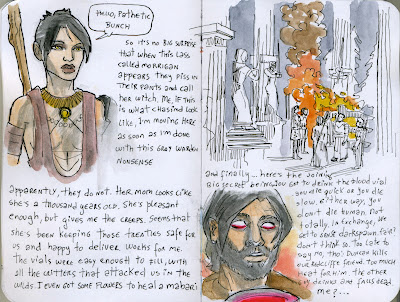 Hello, Pathetic
Bunch
So it's no BIG SURPRISE
that when this lass
called Morrigan
appears they piss in
their pants and call
her witch. Me, if this
is what chasind look
like, I'm moving here
as soon as I'm done
with this Grey Warden
nonsense
apparently, they do not. Her mom looks like
she's a thousand years old. She's pleasant
enough, but gives me the creeps. Seems that
she's been keeping those treaties safe for
us and happy to deliver. Works for me.
The vials were easy enough to fill, with
all the critters that attacked us in the
wilds. I even got some flowers to heal a mabari
and finally... here's the Joining
Big secret being, you get to drink the blood vial
you die quick or you die
slow. either way, you
don't die human, not
totally. In exchange, we
get to sense darkspawn. fair?
don't think so. Too late to
say no, tho': Duncan kills
our Redcliffe friend. Too much
heat for him. the other
guy drinks and falls dead
me?...